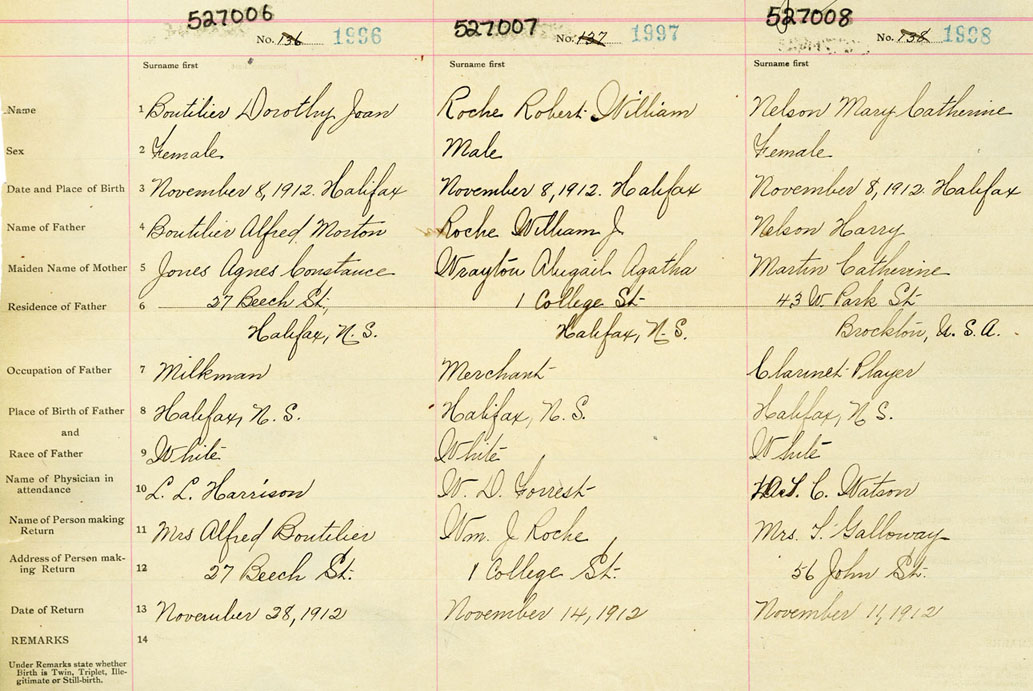 527006 527007 527008
No. 136 1996 No. 137 1997 No. 138 1998
Surname first Surname first Surname first
Name 1 Boutilier Dorothy Joan Roche Robert William Nelson Mary Catherine
Sex 2 Female Male Female
Date and Place of Birth 3 November 8, 1912. Halifax November 8, 1912. Halifax November 8, 1912 Halifax
Name of Father 4 Boutilier Alfred Morton Roche William J Nelson Harry
Maiden Name of Mother 5 Jones Agnes Constance Wrayton Abigail Agatha Martin Catherine
Residence of Father 6 27 Beech St., 1 College St 43 W. Park St
Halifax, N. S. Halifax, N. S. Brockton, U. S. A.
Occupation of Father 7 Milkman Merchant Clarinet Player
Place of Birth of Father 8 Halifax, N. S. Halifax, N. S. Halifax, N S.
and
Race of Father 9 White White White
Name of Physician in
attendance 10 L. L. Harrison W. D. Forrest C. Watson
Name of Person making
Return 11 Mrs Alfred Boutilier Wm. J Roche Mrs. Galloway
Address of Person mak-
ing Return 12 27 Beech St. 1 College St. 56 John St.
Date of Return 13 November 28, 1912 November 14, 1912 November 11, 1912
REMARKS 14
Under Remarks state whether
Birth is Twin, Triplet, Ille-
gitimate or Still-birth.